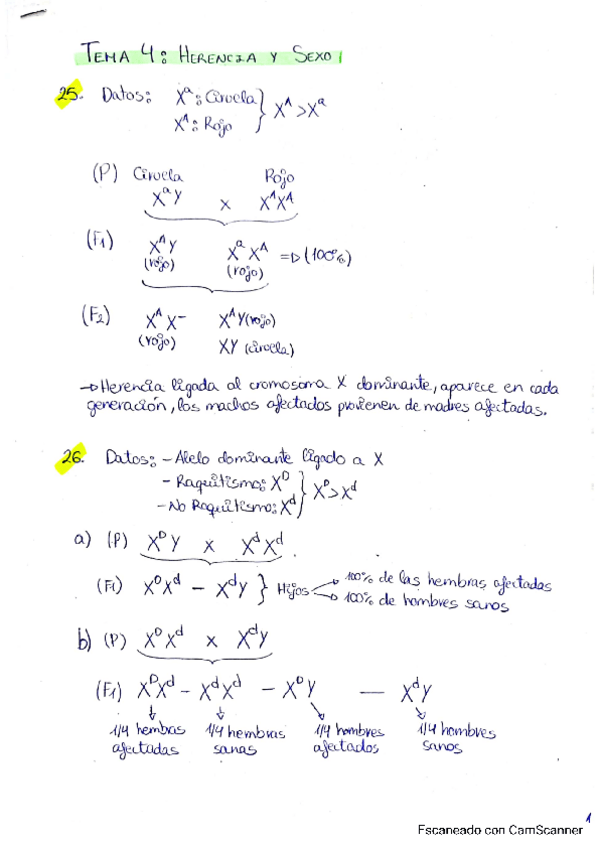 TEMA 4: HERENCIA Y SEXO
25. Datos: Xᵃ: Ciruela } Xᴬ > Xᵃ
Xᴬ: Rojo
(P) Ciruela Rojo
XᵃY x XᴬXᴬ
(F₁) XᴬY XᵃXᴬ => (100%)
(rojo) (rojo)
(F₂) XᴬX⁻ XᴬY (rojo)
(rojo) XY (ciruela)
→ Herencia ligada al cromosoma X dominante, aparece en cada
generación, los machos afectados provienen de madres afectadas.
26. Datos: - Alelo dominante ligado a X
- Raquitismo: Xᴰ } Xᴰ > Xᵈ
- No Raquitismo: Xᵈ
a) (P) XᴰY x XᵈXᵈ.
(F₁) XᴰXᵈ - XᵈY } Hijos → 100% de las hembras afectadas
→ 100% de hombres sanos
b) (P) XᴰXᵈ x XᵈY
(F₁) XᴰXᵈ - XᵈXᵈ - XᴰY — XᵈY
1/4 hembas 1/4 hembras 1/4 hombres 1/4 hombres
afectadas sanas afectados sanos
1
Escaneado con CamScanner